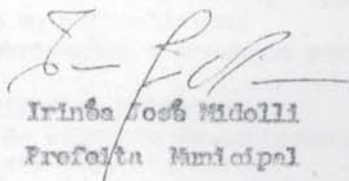 Irinêa José Midolli
Prefeita Municipal